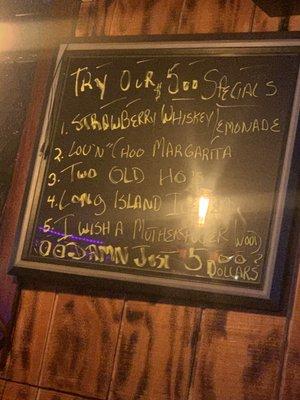 TRY OUR $5.00 SPECIALS
1. STRAWBERRY WHISKEY LEMONADE
2. LOU'N "CHOO MARGARITA
3. TWO OLD HO'S
4. LONG ISLAND
5. I WISH A MUTHSASUCKER WOOD
DAMN JUST 5 DOLLARS